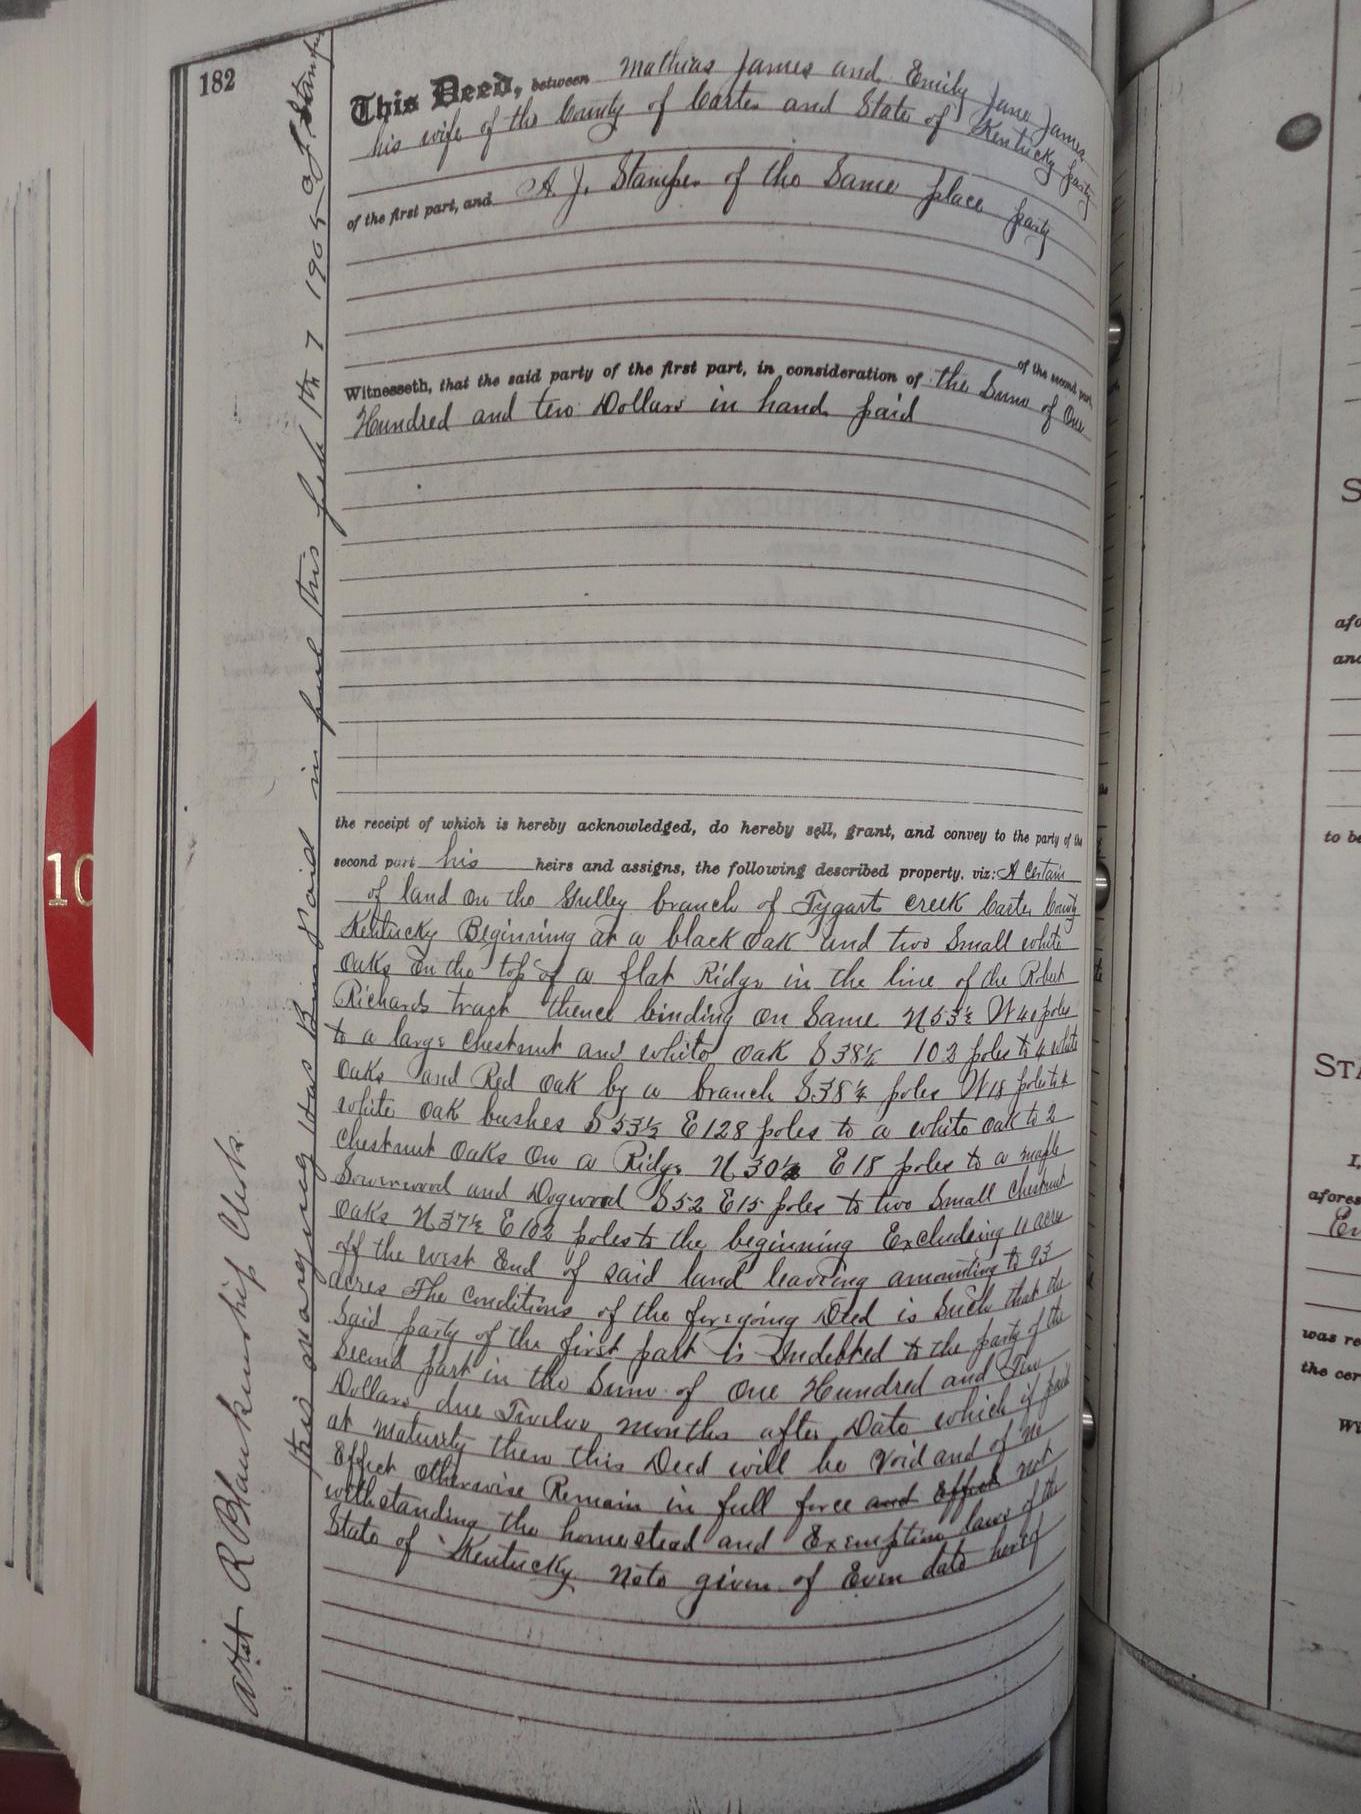 182
This Deed, between Mathias James and Emily Jane James
his wife of the County of Carter and State of Kentucky party
of the first part, and A J. Stamper of the Same place party
of the second part,
Witnesseth, that the said party of the first part, in consideration of the Sum of One
Hundred and two Dollars in hand paid
the receipt of which is hereby acknowledged, do hereby sell, grant, and convey to the party of the
second part his heirs and assigns, the following described property, viz: A Certain
of land on the Gulley branch of Tygarts creek Carter County
Kentucky Beginning at a black oak and two Small white
oaks on the top of a flat Ridge in the line of the Robert
Richards tract thence binding on Same N 53½ W poles
to a large chestnut and white oak S 38½ 102 poles to 4 white
oaks and Red oak by a branch S 38½ poles W 18 poles to
white oak bushes S 53½ E 128 poles to a white oak to 2
chestnut oaks on a Ridge N 30½ E 18 poles to a maple
Sowerwood and Dogwood S 52 E 15 poles to two Small chestnut
oaks N 37½ E 102 poles to the beginning Excluding 11 acres
off the west End of said land leaving amounting to 93
acres The conditions of the foregoing Deed is Such that the
Said party of the first part is Indebted to the party of the
Second part in the Sum of One Hundred and Two
Dollars due Twelve months after Date which if paid
at maturity then this Deed will be Void and of no
Effect otherwise Remain in full force and effect not
withstanding the homestead and Exemption laws of the
State of Kentucky. Note given of Even date hereof
this mortgage has Being paid in full this Feb the 7 1905 A J Stamper
Attst R Blankenship Clerk.
10
S
afo
and
to be
STA
I,
afores
Em
was re
the cer
WI